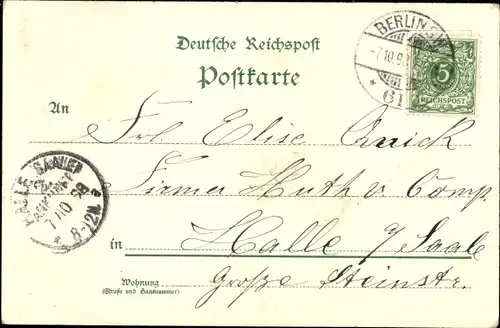 Deutsche Reichspost
Postkarte
BERLIN S.W.
-7.10.9
* 61
5
REICHSPOST
An
Frl Elise
Firma Huth & Comp.
HALLE SAALE
7/10 98
8-12N.
in Halle a/Saale
Wohnung
(Straße und Hausnummer)
Große Steinstr.